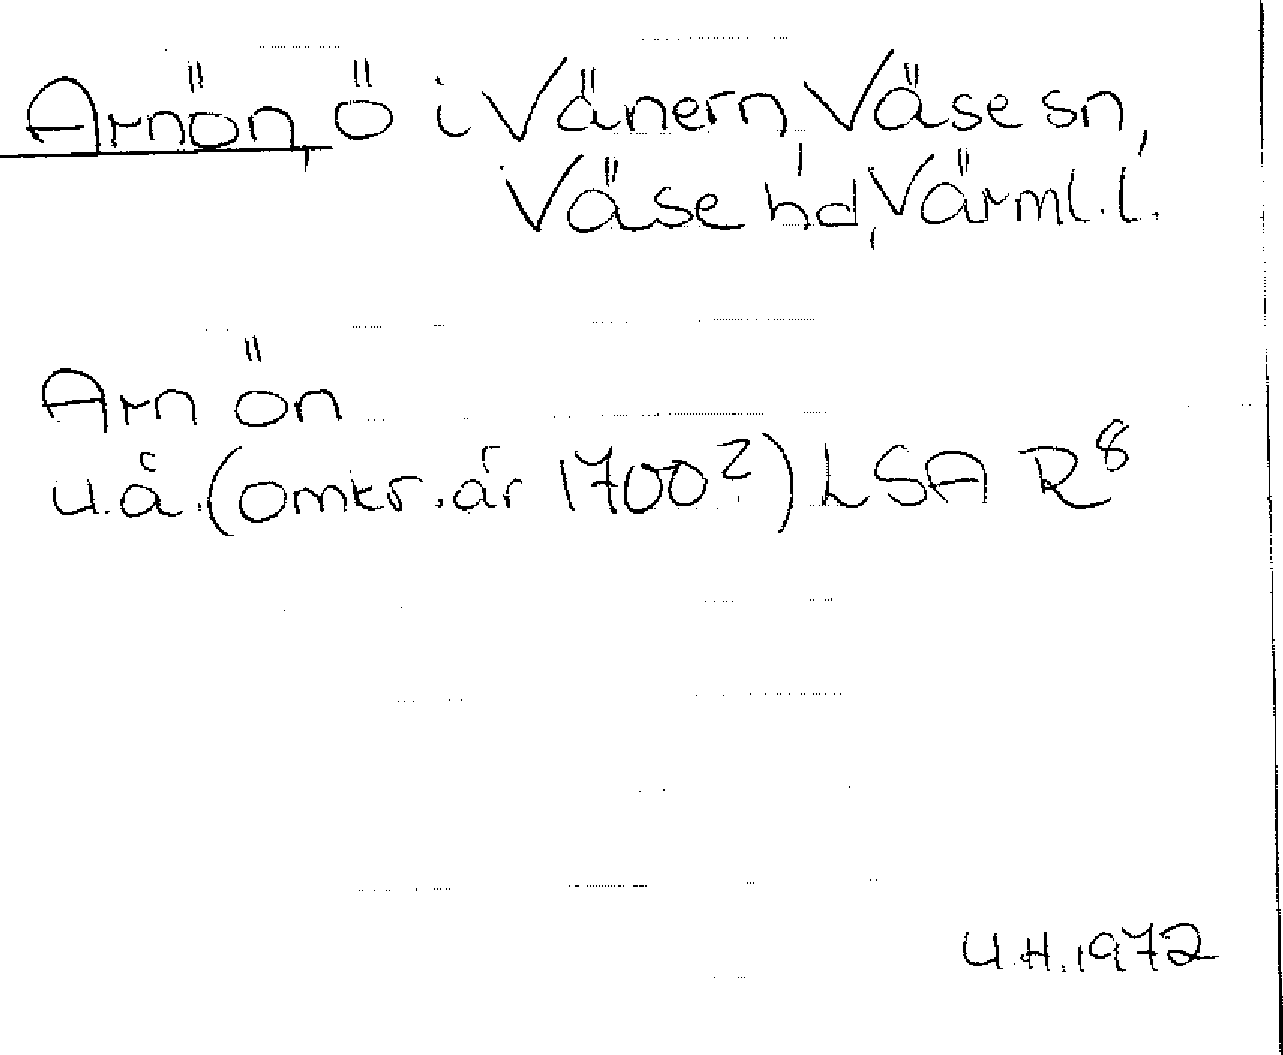 Arnön, ö i Vänern, Väse sn,
Väse hd, Värml. l.
Arn ön
u.å. (omkr. år 1700?) LSA R8
U.H. 1972